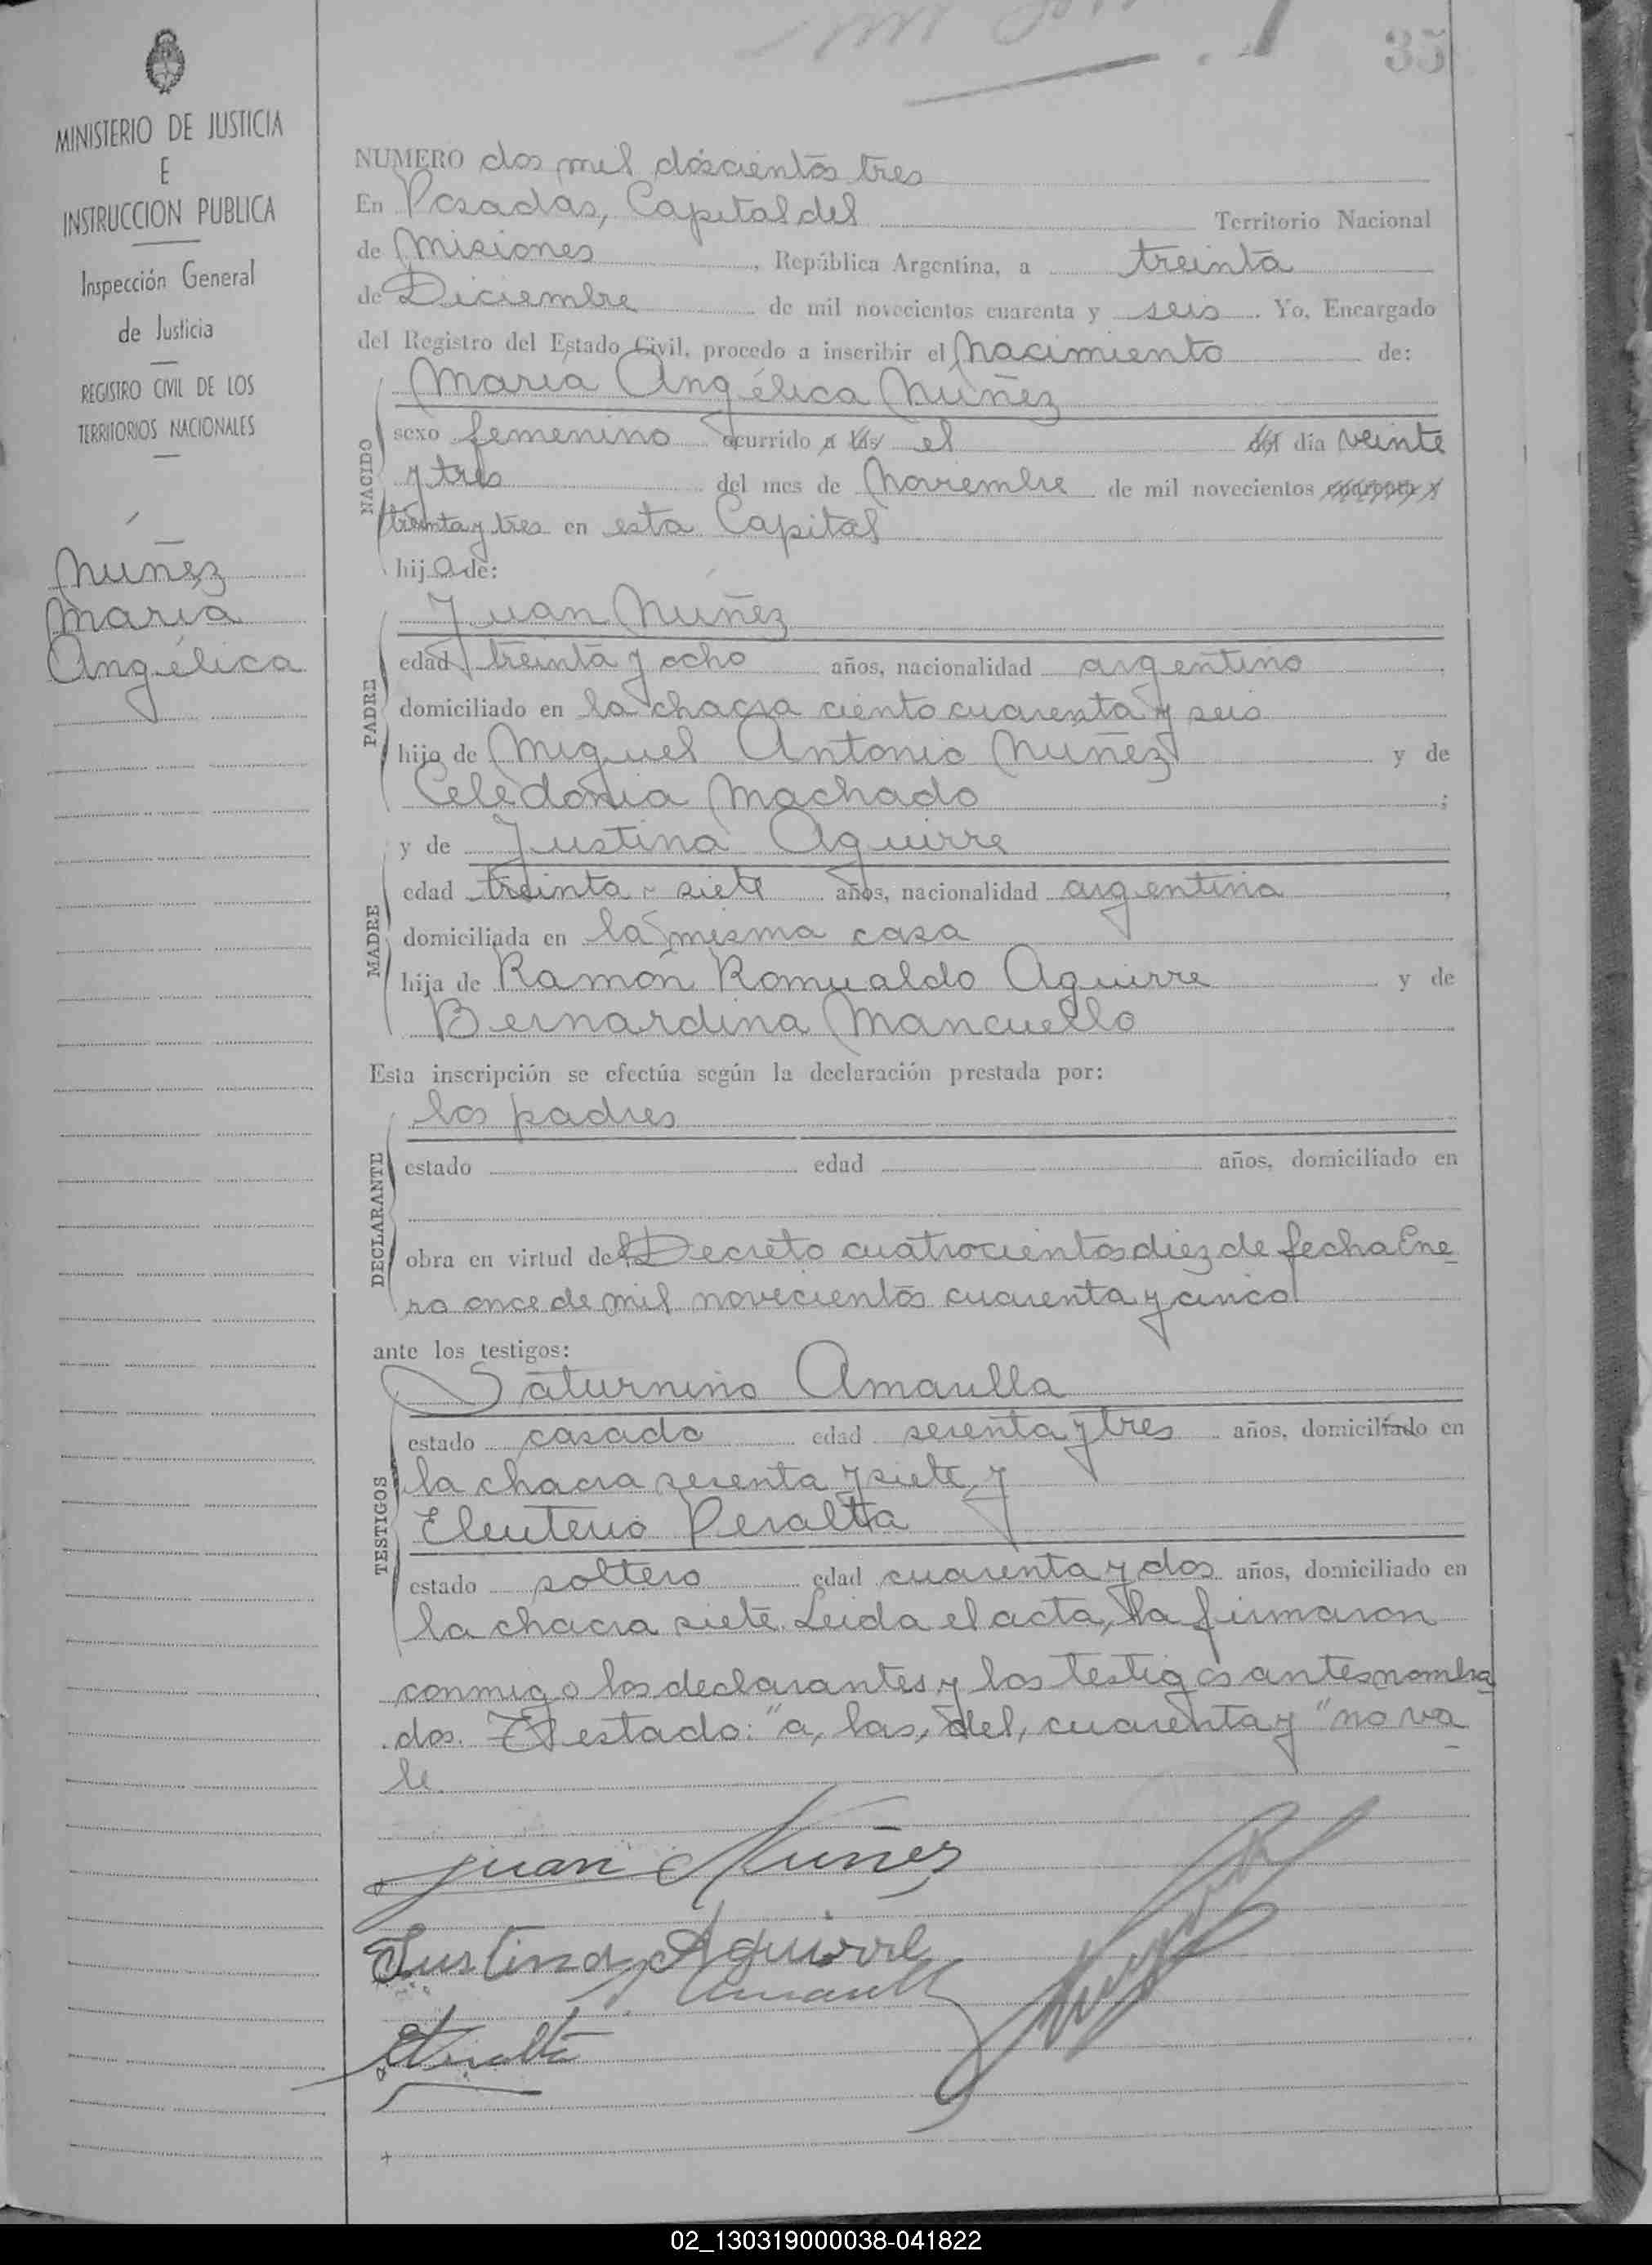 35
MINISTERIO DE JUSTICIA
E
INSTRUCCION PUBLICA
Inspección General
de Justicia
REGISTRO CIVIL DE LOS
TERRITORIOS NACIONALES
Núñez
María
Angélica
NUMERO dos mil doscientos tres
En Posadas, Capital del Territorio Nacional
de Misiones, República Argentina, a treinta
de Diciembre de mil novecientos cuarenta y seis. Yo, Encargado
del Registro del Estado Civil, procedo a inscribir el Nacimiento de:
NACIDO
María Angélica Núñez
sexo femenino ocurrido a las el del día veinte
y tres del mes de Noviembre de mil novecientos cuarenta y
treinta y tres en esta Capital
hija de:
PADRE
Juan Núñez
edad treinta y ocho años, nacionalidad argentino,
domiciliado en la chacra ciento cuarenta y seis
hijo de Miguel Antonio Núñez y de
Celedonia Machado;
MADRE
y de Justina Aguirre
edad treinta y siete años, nacionalidad argentina,
domiciliada en la misma casa
hija de Ramón Romualdo Aguirre y de
Bernardina Mancuello
Esta inscripción se efectúa según la declaración prestada por:
DECLARANTE
los padres
estado edad años, domiciliado en
obra en virtud del Decreto cuatrocientos diez de fecha Ene
ro once de mil novecientos cuarenta y cinco.
ante los testigos:
TESTIGOS
Saturnino Amarilla
estado casado edad sesenta y tres años, domiciliado en
la chacra sesenta y siete y
Eleuterio Peralta
estado soltero edad cuarenta y dos años, domiciliado en
la chacra siete. Leida el acta, la firmaron
conmigo los declarantes y los testigos antes nombra
dos. Testado: "a, las, del, cuarenta y" no va
le
Juan Núñez
Justina Aguirre
02_130319000038-041822